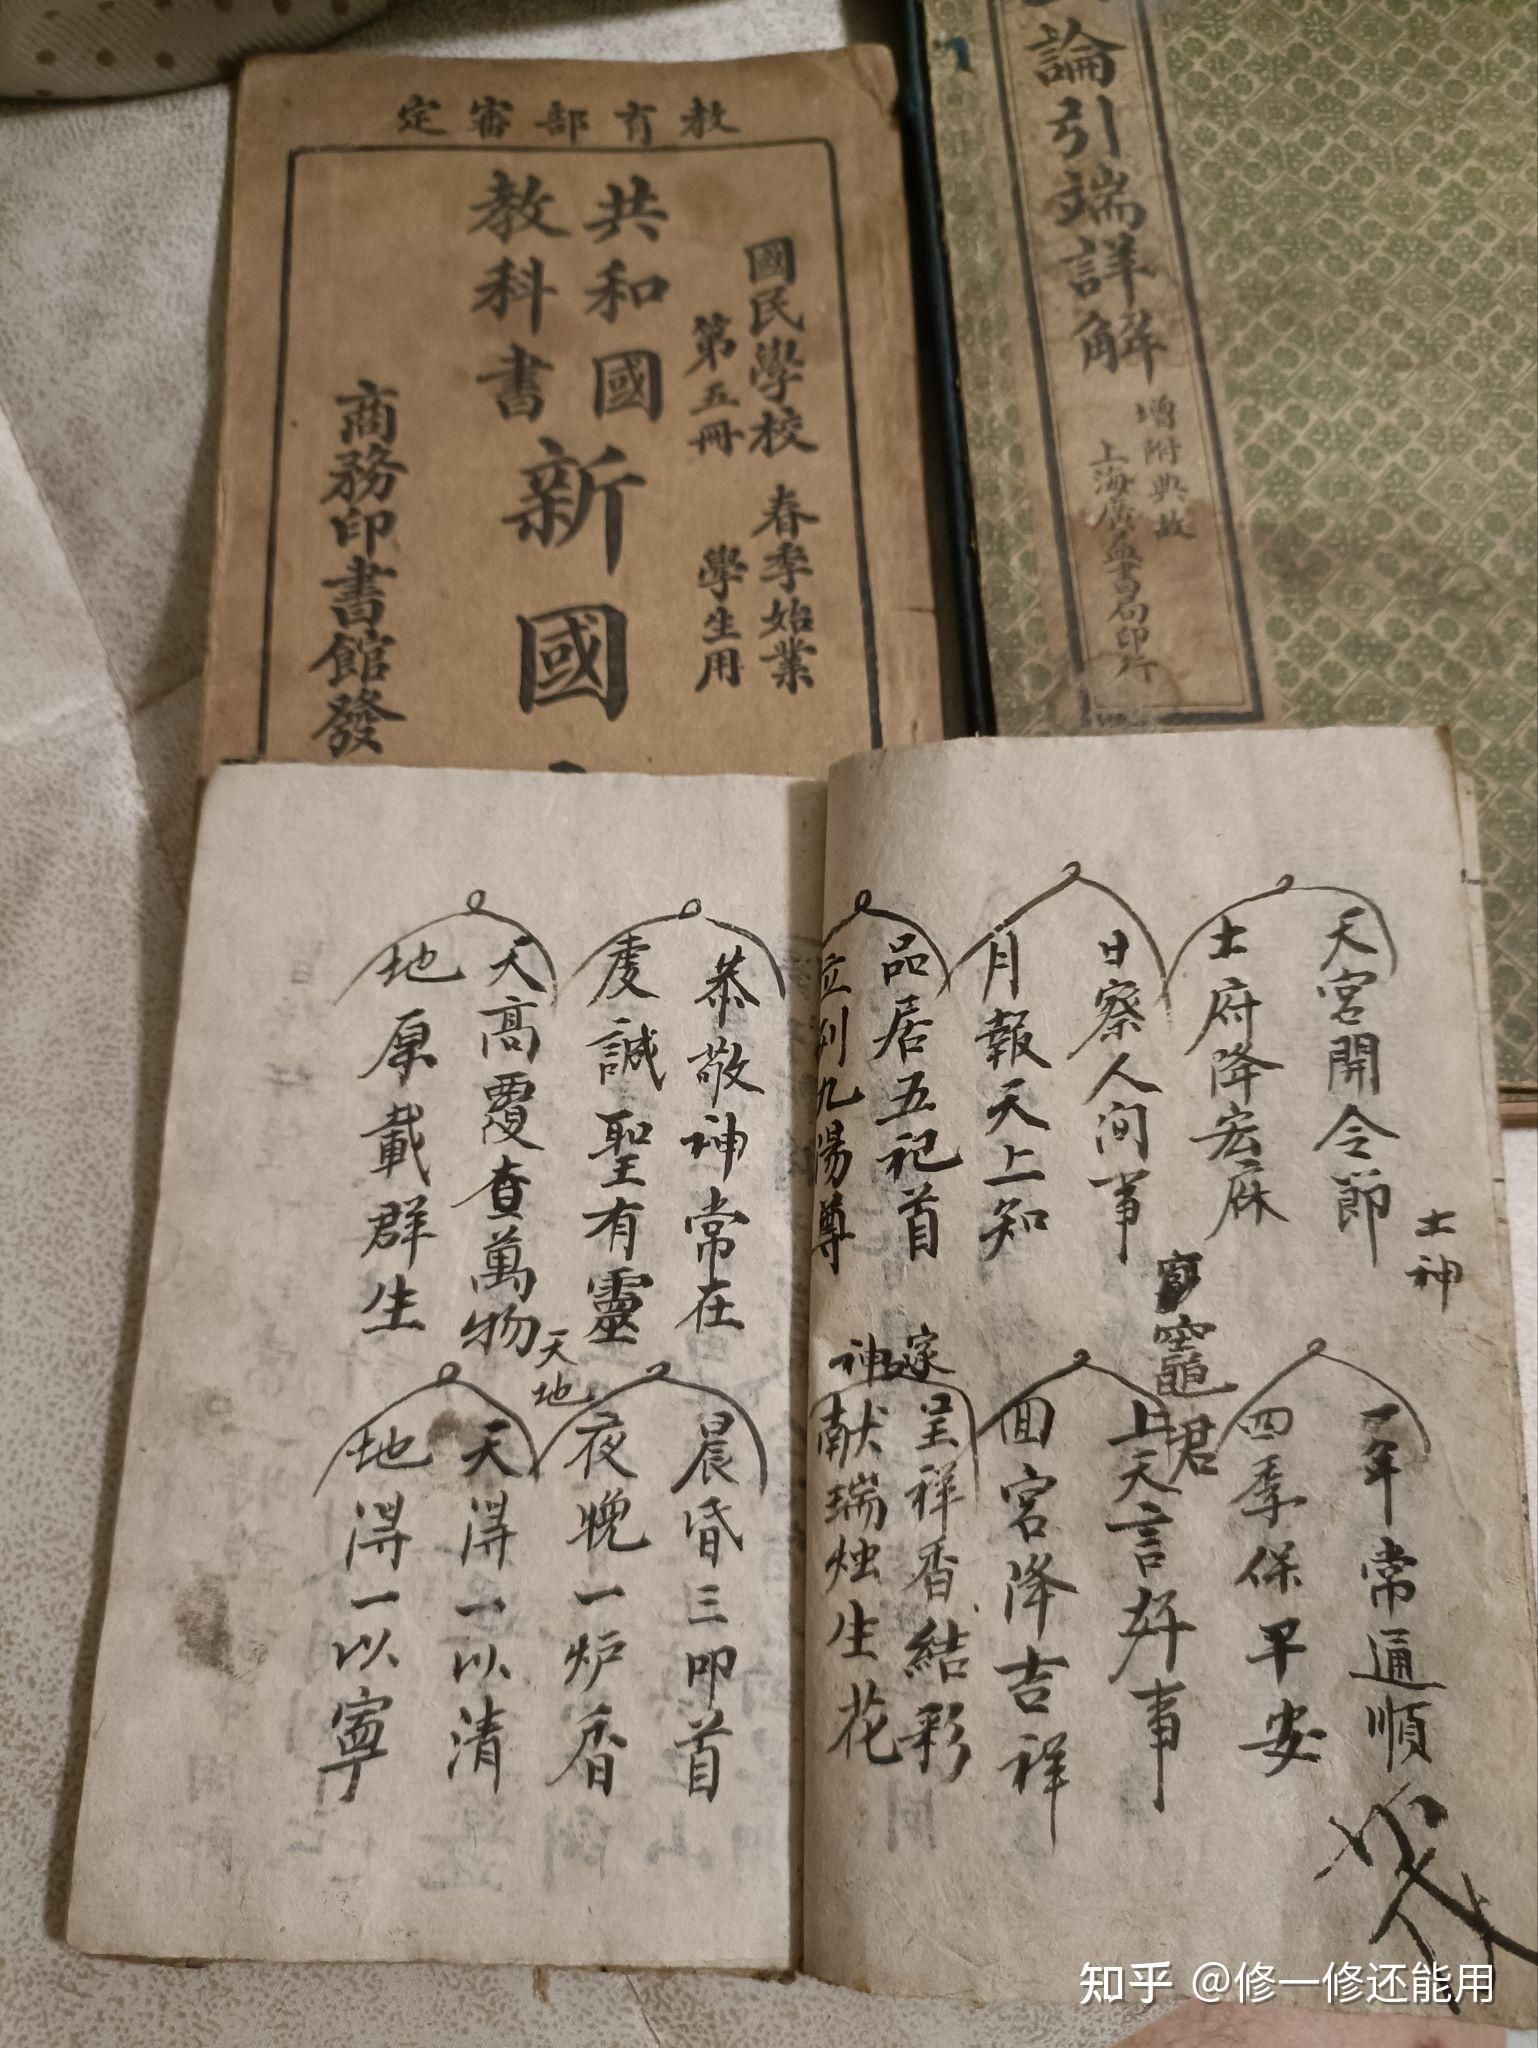 教育部審定
國民學校 春季始業
第五冊 學生用
共和國
教科書
新國
商務印書館發
論引端詳解
增附典故
上海廣益書局印行
天宮開令節
土府降宏庥
土神
一年常通順
四季保平安
日察人间事
月報天上知
竈君
上天言好事
回宮降吉祥
品居五祀首
位列九陽尊
家神
呈祥香結彩
献瑞烛生花
恭敬神常在
虔誠聖有靈
晨昏三叩首
夜晚一炉香
天高覆查萬物
地厚載群生
天地
天淂一以清
地淂一以寧
知乎 @修一修还能用